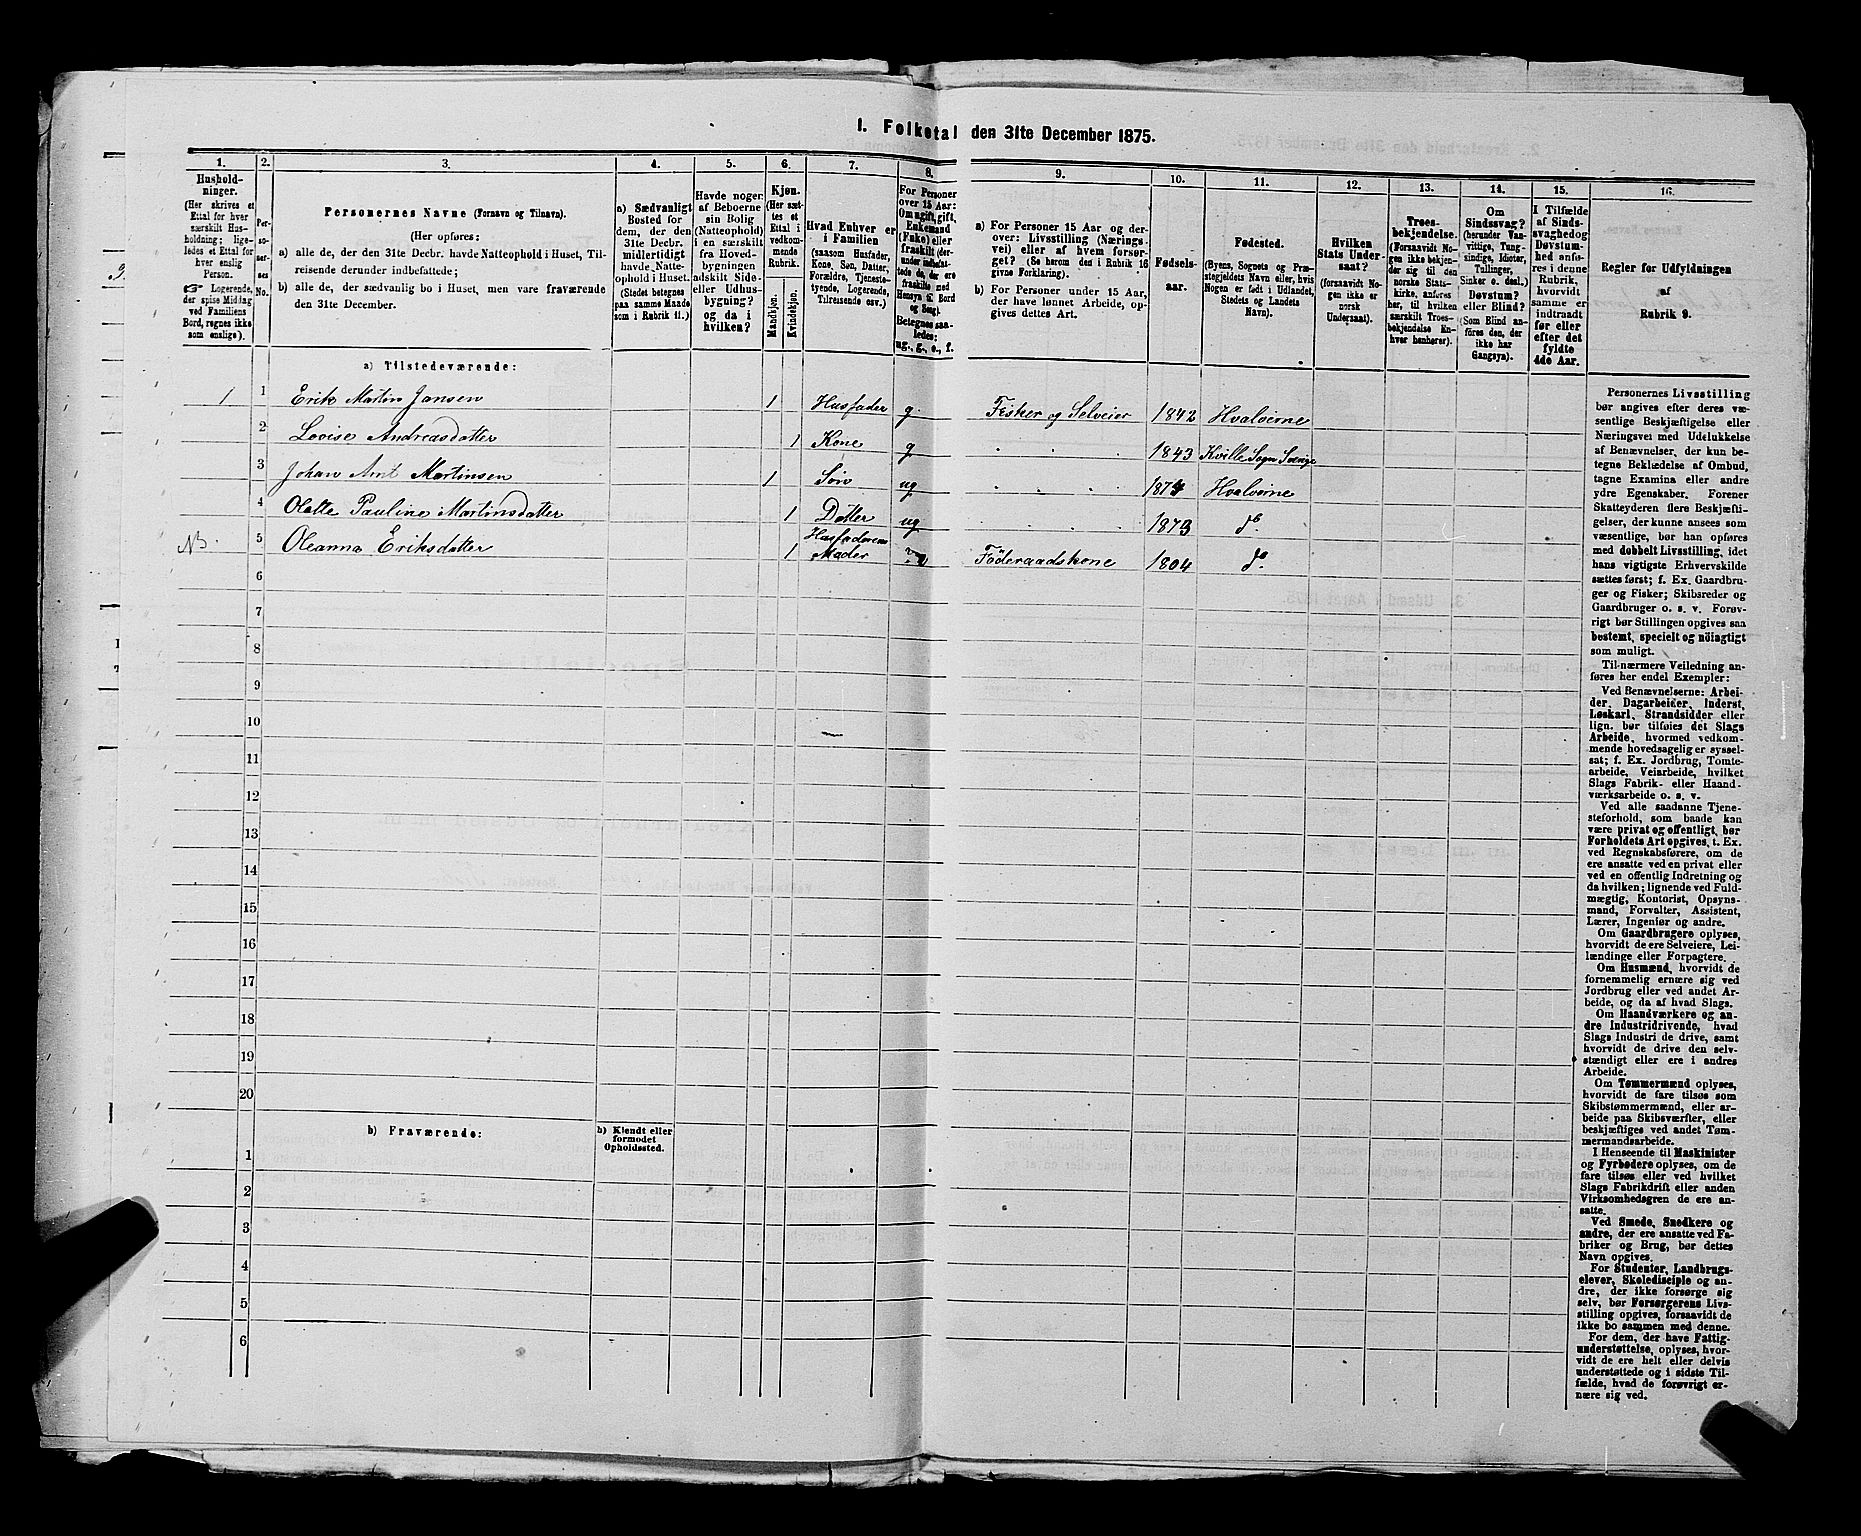 I. Folketal den 31te December 1875.
1. 2. 3. 4. 5. 6. 7. 8. 9. 10. 11. 12. 13. 14. 15. 16.
Hushold-
ninger.
(Her skrives et
Ettal for hver
særskilt Hus-
holdning; lige-
ledes et Ettal for
hver enslig
Person.
☞ Logerende,
der spise Middag
ved Familiens
Bord, regnes ikke
som enslige).
Per-
so-
ner-
nes
No.
Personernes Navne (Fornavn og Tilnavn).
(Her opføres:
a) alle de, der den 31te Decbr. havde Natteophold i Huset, Til-
reisende derunder indbefattede;
b) alle de, der sædvanlig bo i Huset, men vare fraværende
den 31te December.
a) Sædvanligt
Bosted for
dem, der den
31te Decbr.
midlertidigt
havde Natte-
ophold i Huset.
(Stedet betegnes
paa samme Maade
som i Rubrik 11.)
Havde nogen
af Beboerne
sin Bolig
(Natteophold)
i en særskilt
fra Hoved-
bygningen
adskilt Side-
eller Udhus-
bygning?
og da i
hvilken?
Kjøn.
(Her sæt-
tes et
Ettal i
vedkom-
mende
Rubrik.
Mandkjøn.
Kvindekjøn.
Hvad Enhver er
i Familien
(saasom Husfader,
Kone, Søn, Datter,
Forældre, Tjeneste-
tyende, Logerende,
Tilreisende osv.)
For Personer
over 15 Aar:
Om ugift, gift,
Enkemand
(Enke) eller
fraskilt (der-
under indbefat-
tede de, der ere
fraskilte med
Hensyn til Bord
og Seng).
Betegnes saa-
ledes:
ug., g., e., f.
a) For Personer 15 Aar og der-
over: Livsstilling (Nærings-
vei) eller af hvem forsør-
get? (Se herom den i Rubrik 16
givne Forklaring).
b) For Personer under 15 Aar,
der have lønnet Arbeide, op-
gives dettes Art.
Fødsels-
aar.
Fødested.
(Byens, Sognets og Præ-
stegjeldets Navn eller, hvis
Nogen er født i Udlandet,
Stedets og Landets
Navn).
Hvilken
Stats Under-
saat?
(forsaavidt No-
gen ikke er
norsk
Undersaat).
Troes-
bekjendelse.
(Forsaavidt No-
gen ikke bekjen-
der sig til den
norske Stats-
kirke, anføres
her, til hvilken
særskilt Troes-
bekjendelse En-
hver henhører).
Om
Sindssvag?
(herunder Van-
vittige, Tung-
sindige, Idioter,
Tullinger,
Sinker o. desl.)
Døvstum?
eller Blind?
(Som Blind an-
föres den, der
ikke har
Gangsyn).
I Tilfælde
af Sinds-
svaghed og
Døvstum-
hed anfø-
res i denne
Rubrik,
hvorvidt
samme er
indtraadt
før eller
efter det
fyldte
4de Aar.
Regler for Udfyldningen
af
Rubrik 9.
a) Tilstedeværende:
1 1 Erik Martin Jansen 1 Husfader g. Fisker og Selveier 1842 Hvaløerne
2 Lovise Andreasdatter 1 Kone g 1843 Kville Sogn Sverige
3 Johan Ant Martinsen 1 Søn ug 1874 Hvaløerne
4 Olette Pauline Martinsdatter 1 Datter ug 1873 do
NB. 5 Oleanna Eriksdatter 1 Husfaderens Moder Föderaadskone 1804 do.
6
7
8
9
10
11
12
13
14
15
16
17
18
19
20
b) Fraværende:
b) Kjendt eller
formodet
Opholdssted.
1
2
3
4
5
6
Personernes Livsstilling
bør angives efter deres væ-
sentlige Beskjæftigelse eller
Næringsvei med Udelukkelse
af Benævnelser, der kun be-
tegne Beklædelse af Ombud,
tagne Examina eller andre
ydre Egenskaber. Forener
Skatteyderen flere Beskjæfti-
gelser, der kunne ansees som
væsentlige, bør han opføres
med dobbelt Livsstilling, idet
hans vigtigste Erhvervskilde
sættes først; f. Ex. Gaardbru-
ger og Fisker; Skibsreder og
Gaardbruger o. s. v. Forøv-
rigt bør Stillingen opgives saa
bestemt, specielt og nöiagtigt
som muligt.
Til nærmere Veiledning an-
føres her endel Exempler:
Ved Benævnelserne: Arbei-
der, Dagarbeider, Inderst,
Løskarl, Strandsidder eller
lign. bør tilføies det Slags
Arbeide, hvormed vedkom-
mende hovedsagelig er syssel-
sat; f. Ex. Jordbrug, Tomte-
arbeide, Veiarbeide, hvilket
Slags Fabrik- eller Haand-
værksarbeide o. s. v.
Ved alle saadanne Tjene-
steforhold, som baade kan
være privat og offentligt, bør
Forholdets Art opgives, t. Ex.
ved Regnskabsførere, om de
ere ansatte ved en privat eller
ved en offentlig Indretning og
da hvilken; lignende ved Fuld-
mægtig, Kontorist, Opsyns-
mand, Forvalter, Assistent,
Lærer, Ingeniør og andre.
Om Gaardbrugere oplyses,
hvorvidt de ere Selveiere, Lei-
lændinge eller Forpagtere.
Om Husmænd, hvorvidt de
fornemmelig ernære sig ved
Jordbrug eller ved andet Ar-
beide, og da af hvad Slags.
Om Haandværkere og an-
dre Industridrivende, hvad
Slags Industri de drive, samt
hvorvidt de drive den selv-
stændigt eller ere i andres
Arbeide.
Om Tømmermænd oplyses,
hvorvidt de fare tilsøs som
Skibstømmermænd, eller ar-
beide paa Skibsværfter, eller
beskjæftiges ved andet Tøm-
mermandsarbeide.
I Henseende til Maskinister
og Fyrbødere oplyses, om de
fare tilsøs eller ved hvilket
Slags Fabrikdrift eller anden
Virksomhedsgren de ere an-
satte.
Ved Smede, Snedkere og
andre, der ere ansatte ved Fa-
briker og Brug, bør dettes
Navn opgives.
For Studenter, Landbrugs-
elever, Skoledisciple og an-
dre, der ikke forsørge sig
selv, bør Forsørgerens Livs-
stilling opgives, forsaavidt de
ikke bo sammen med denne.
For dem, der have Fattig-
understøttelse, oplyses, hvor-
vidt de ere helt eller delvis
understøttede og i sidste Til-
fælde, hvad de forøvrigt er-
nære sig ved.